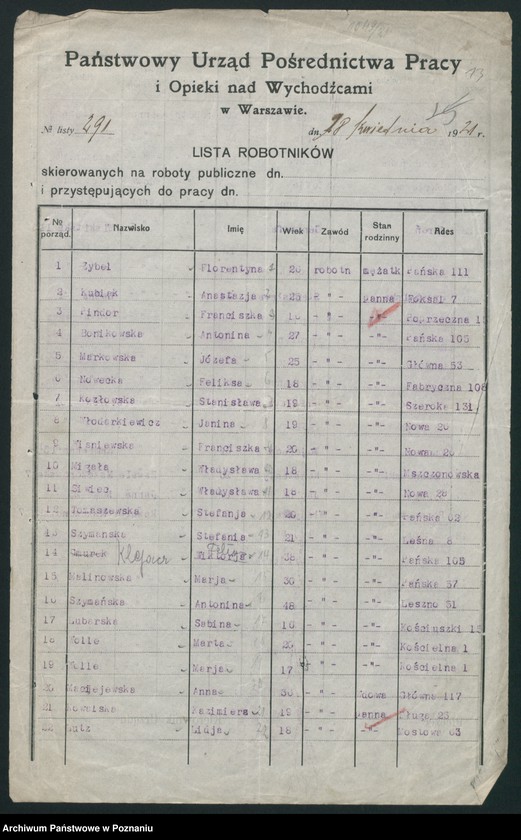 Państwowy Urząd Pośrednictwa Pracy
i Opieki nad Wychodźcami
w Warszawie.
№ listy 291 dn. 28 kwietnia 1921 r.
LISTA ROBOTNIKÓW
skierowanych na roboty publiczne dn.
i przystępujących do pracy dn.
№ porząd. Nazwisko Imię Wiek Zawód Stan rodzinny Ades
1 Zybel Florentyna 20 robotn mężatk Pańska 111
2 Kubiak Anastazja - " - panna 7
3 Pindor Franciszka - " - -"- Poprzeczna 1
4 Bonikowska Antonina 27 - " - -"- Pańska 105
5 Markowska Józefa 25 - " - -"- Główna 53
6 Nowacka Feliksa 18 - " - -"- Fabryczna 106
7 Kozłowska Stanisława 19 - " - -"- Szeroka 131
8 Włodarkiewicz Janina 19 - " - -"- Nowa 20
9 Wiśniewska Franciszka 20 - " - -"- Nowa 20
10 Migała Władysława 18 - " - -"- Mszczonowska
11 Siwiec Władysława 18 - " - -"- Nowa 26
12 Tomaszewska Stefanja 20 - " - -"- Pańska 62
13 Szymańska Stefania 21 - " - -"- Leśna 8
14 38 - " - -"- Pańska 105
15 Malinowska Marja 30 - " - -"- Pańska 57
16 Szymańska Antonina 48 - " - -"- Leszno 31
17 Lubarska Sabina - " - -"- Kościuszki
18 Tolle Marta 20 - " - -"- Kościelna 1
19 Tolle Marja 17 - " - -"- Kościelna 1
20 Maciejewska Anna 30 - " - wdowa Główna 117
21 Kazimiera 19 - " - panna Długa
22 Lutz Lidja 18 - " - -"- Mostowa 63
Archiwum Państwowe w Poznaniu